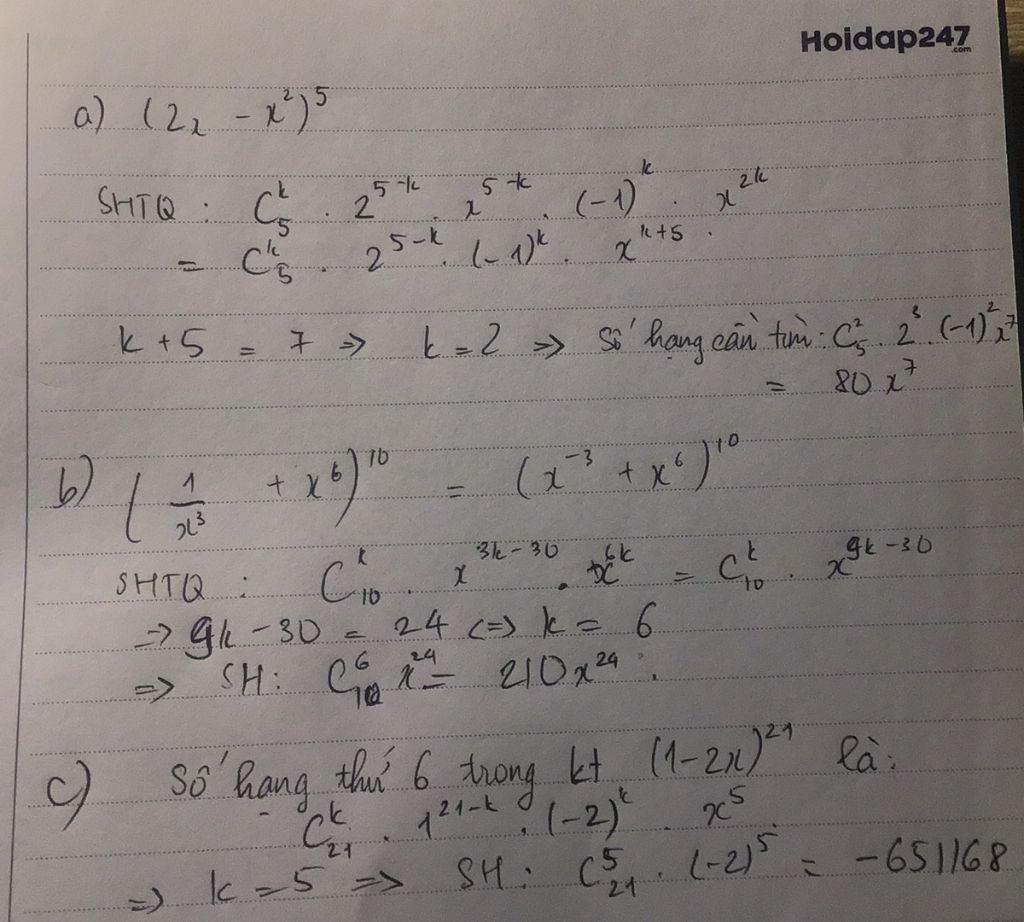 Hoidap247
.com
a) (2x - x²)⁵
SHTQ : C₅ᵏ . 2⁵⁻ᵏ . x⁵⁻ᵏ . (-1)ᵏ . x²ᵏ
= C₅ᵏ . 2⁵⁻ᵏ . (-1)ᵏ . x ᵏ⁺⁵ .
k + 5 = 7 => k = 2 => Số hạng cần tìm : C₅² . 2³ . (-1)² x⁷
= 80 x⁷
b) (1/x³ + x⁶)¹⁰ = (x⁻³ + x⁶)¹⁰
SHTQ : C₁₀ᵏ . x³ᵏ⁻³⁰ . x⁶ᵏ = C₁₀ᵏ . x⁹ᵏ⁻³⁰
=> 9k - 30 = 24 <=> k = 6
=> SH : C₁₀⁶ x²⁴ = 210x²⁴ .
c) Số hạng thứ 6 trong kt (1-2x)²¹ là :
C₂₁ᵏ . 1²¹⁻ᵏ . (-2)ᵏ . x⁵
=> k = 5 => SH : C₂₁⁵ . (-2)⁵ = -651168